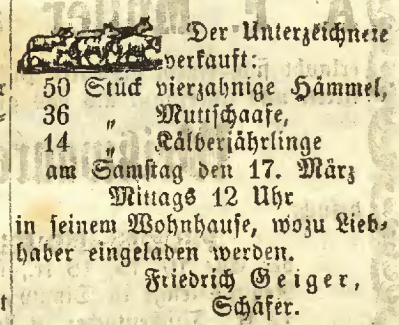 Der Unterzeichnete
verkauft:
50 Stück vierzahnige Hämmel,
36 „ Muttschaafe,
14 „ Kälberjährlinge
am Samstag den 17. März
Mittags 12 Uhr
in seinem Wohnhause, wozu Lieb-
haber eingeladen werden.
Friedrich Geiger,
Schäfer.